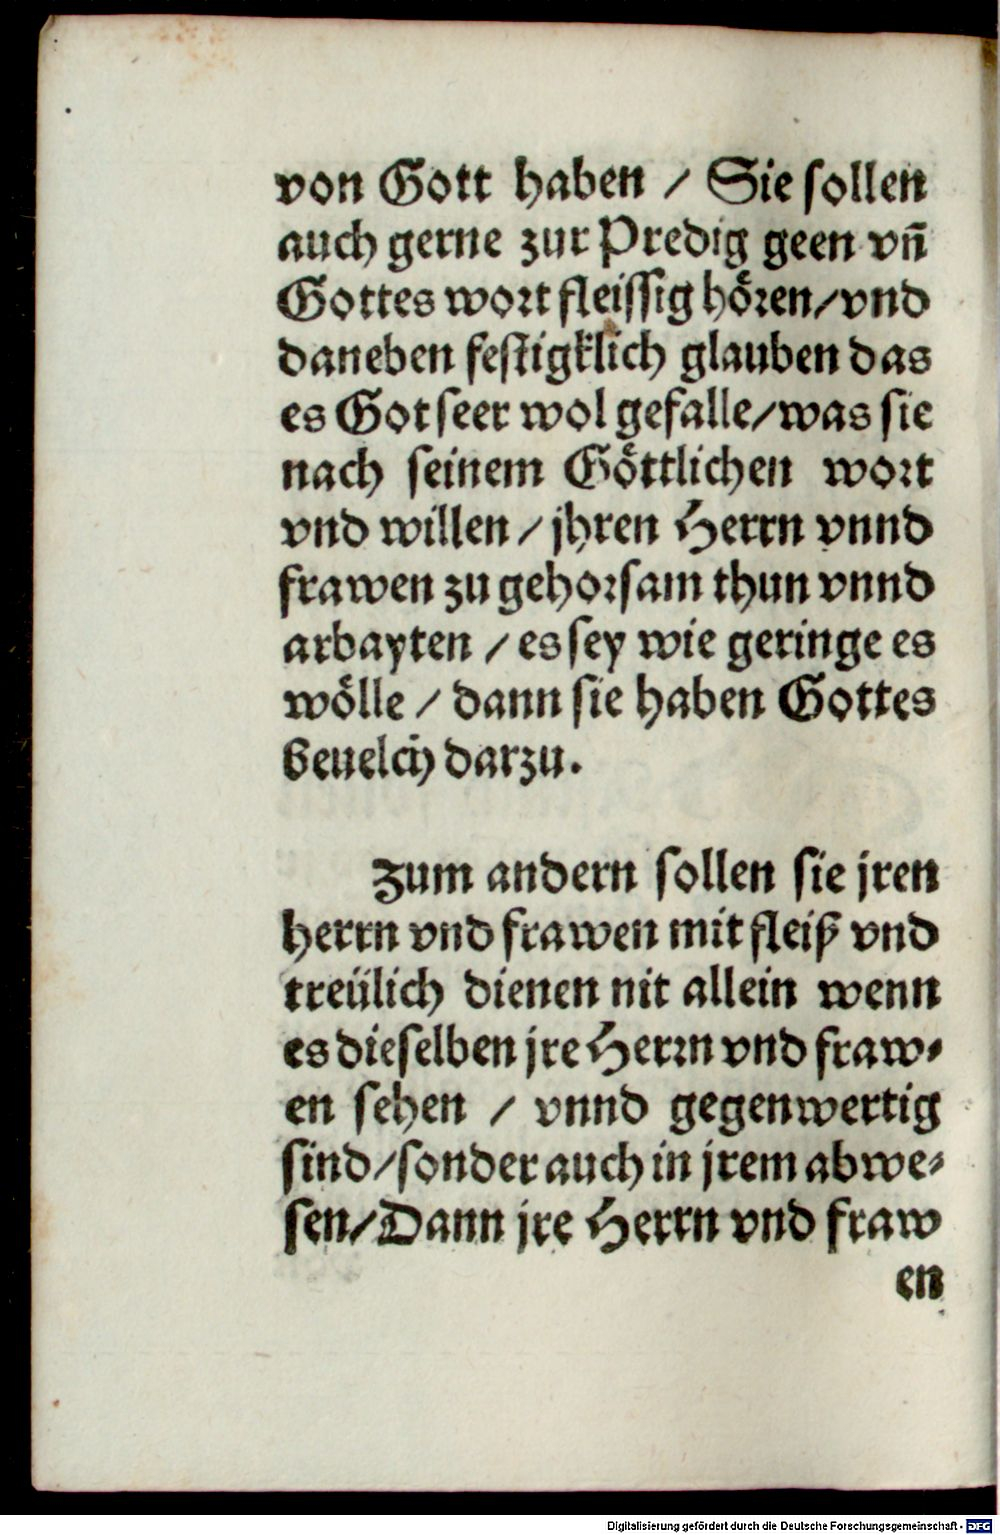 von Gott haben / Sie sollen
auch gerne zur Predig geen vn̄
Gottes wort fleissig hören/vnd
daneben festigklich glauben das
es Got seer wol gefalle/was sie
nach seinem Göttlichen wort
vnd willen / jhren Herrn vnnd
frawen zu gehorsam thun vnnd
arbayten / es sey wie geringe es
wölle / dann sie haben Gottes
beuelch darzu.
Zum andern sollen sie jren
herrn vnd frawen mit fleiß vnd
treülich dienen nit allein wenn
es dieselben jre Herrn vnd fraw⸗
en sehen / vnnd gegenwertig
sind/sonder auch in jrem abwe⸗
sen/Dann jre Herrn vnd fraw
en
Digitalisierung gefördert durch die Deutsche Forschungsgemeinschaft - DFG